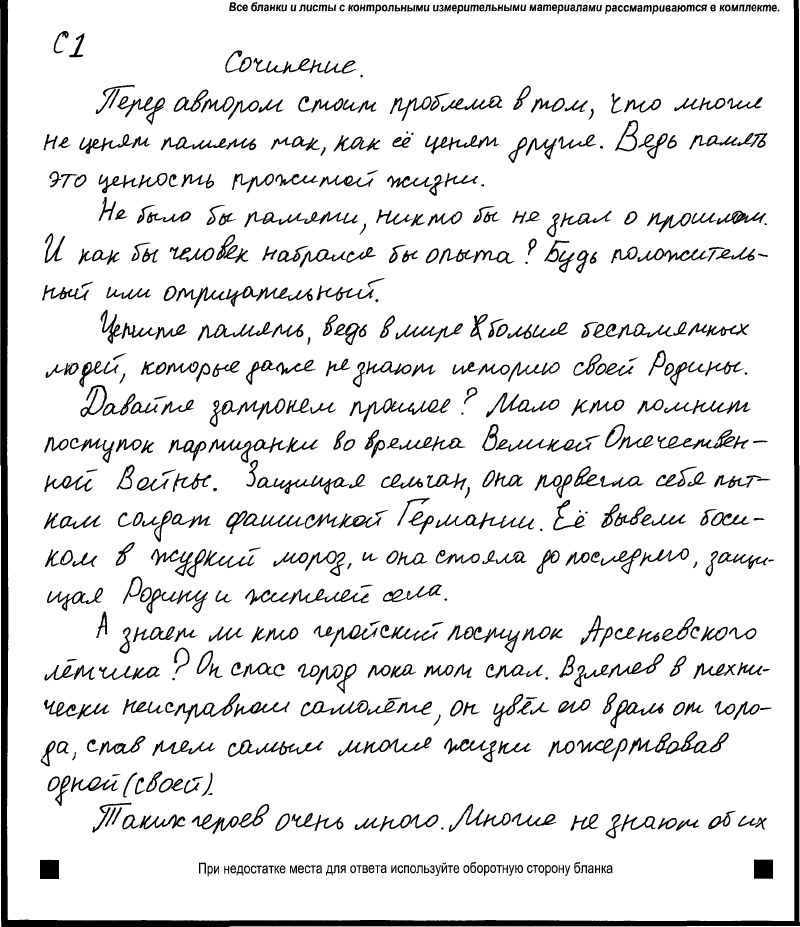 Все бланки и листы с контрольными измерительными материалами рассматриваются в комплекте.
С1
Сочинение.
Перед автором стоит проблема в том, что многие
не ценят память так, как её ценят другие. Ведь память
это ценность прожитой жизни.
Не было бы памяти, никто бы не знал о прошлом.
И как бы человек набрался бы опыта? Будь положитель-
ный или отрицательный.
Цените память, ведь в мире больше беспамятных
людей, которые даже не знают историю своей Родины.
Давайте затронем прошлое? Мало кто помнит
поступок партизанки во времена Великой Отечествен-
ной Войны. Защищая сельчан, она подвегла себя пыт-
кам солдат фашисткой Германии. Её вывели боси-
ком в жудкий мороз, и она стояла до последнего, защи-
щая Родину и жителей села.
А знает ли кто геройский поступок Арсеньевского
лётчика? Он спас город пока тот спал. Взлетев в техни-
чески неисправном самолёте, он увёл его вдаль от горо-
да, спав тем самым многие жизни пожертвовав
одной (своей).
Таких героев очень много. Многие не знают об их
При недостатке места для ответа используйте оборотную сторону бланка